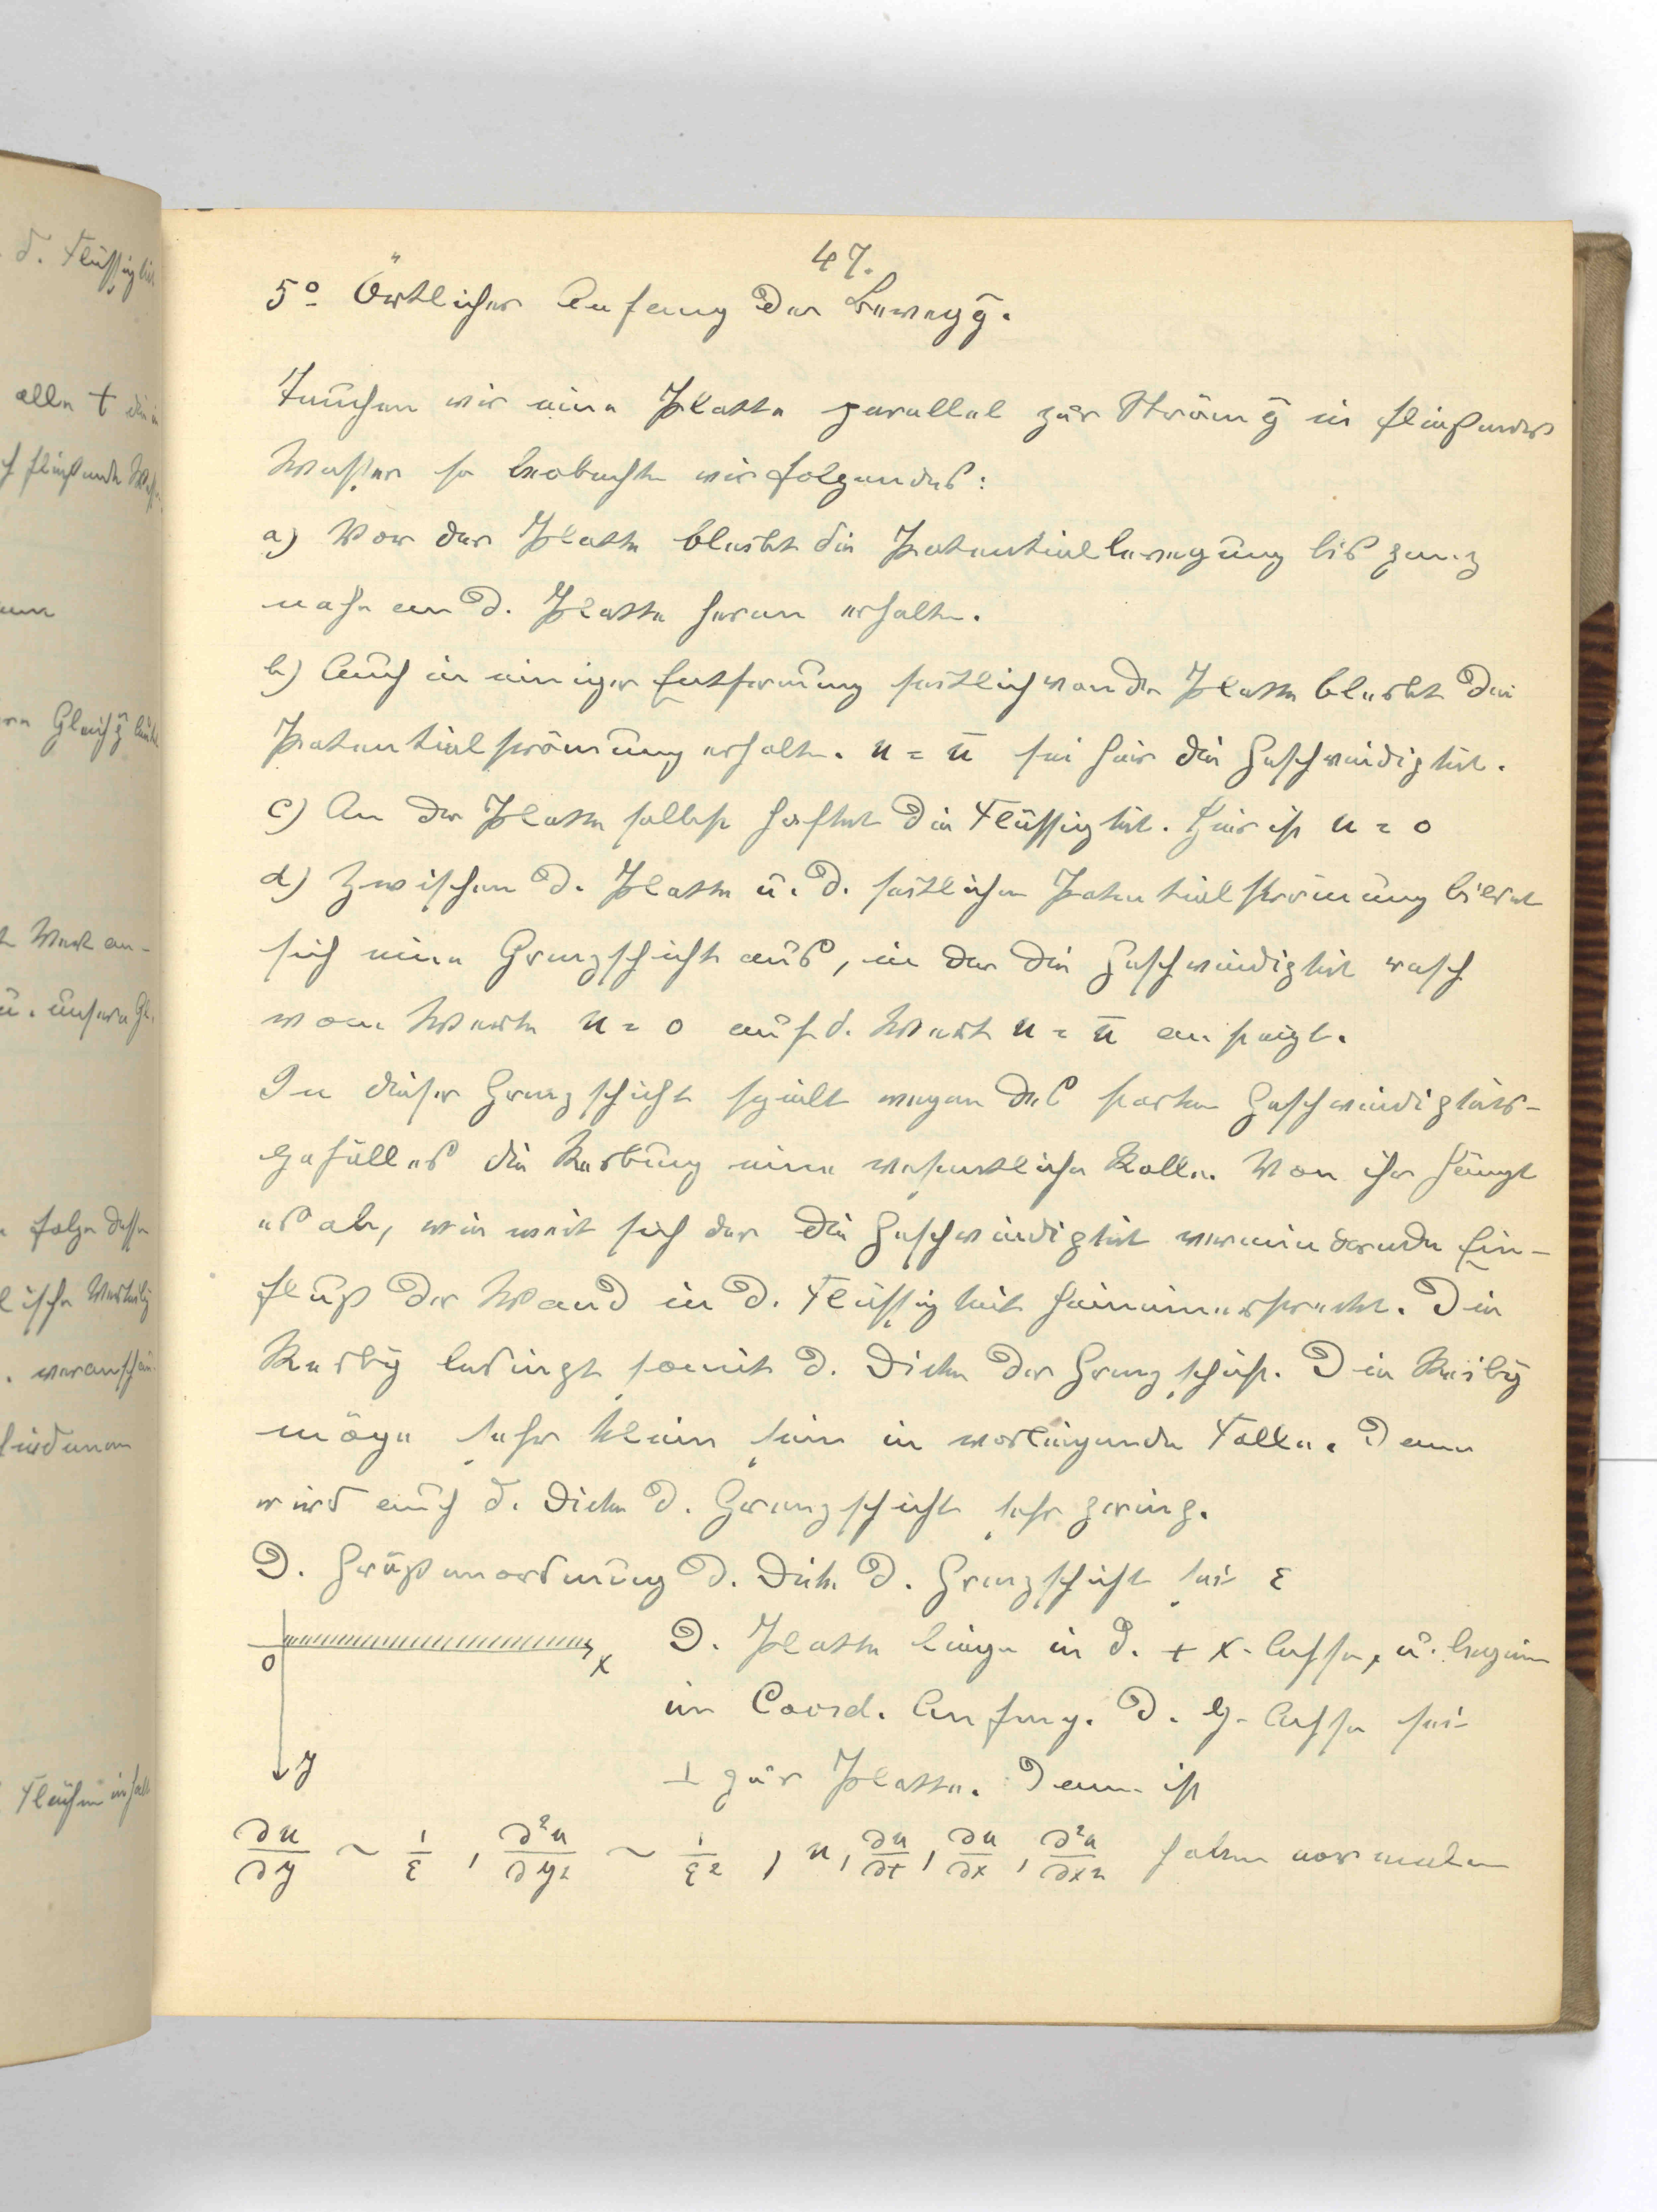 47.
5º Örtlicher Anfang der Bewegg̅.
Tauchen wir eine Platte parallel zur Strömg̅ in fließendes
Wasser so beobachten wir folgendes:
a) Vor der Platte bleibt die Potentialbewegung bis ganz
nahe an d. Platte heran erhalten.
b) Auch in einiger Entfernung seitlich von der Platte bleibt die
Potentialströmung erhalten. u = u̅ sei hier die Geschwindigkeit.
c) An der Platte selbst haftet die Flüssigkeit. Hier ist u = 0
d) Zwischen d. Platte u. d. seitlichen Potentialströmung bildet
sich eine Grenzschicht aus, in der die Geschwindigkeit rasch
vom Werte u = 0 auf d. Wert u = u̅ ansteigt.
In dieser Grenzschicht spielt wegen des starken Geschwindigkeits-
gefälles die Reibung eine wesentliche Rolle. Von ihr hängt
es ab, wie weit sich der die Geschwindigkeit vermindernde Ein-
fluß der Wand in d. Flüssigkeit hineinerstreckt. Die
Reibg̅ bedingt somit d. Dicke der Grenzschicht. Die Reibg̅
möge sehr klein sein im vorliegenden Falle. Dann
wird auch d. Dicke d. Grenzschicht sehr gering.
D. Größenordnung d. Dicke d. Grenzschicht sei ε
0 x
y
D. Platte liege in d. + x-Achse, u. beginne
im Coord. Anfang. D. y-Achse sei
⊥ zur Platte. Dann ist
∂u/∂y ~ 1/ε , ∂²u/∂y² ~ 1/ε² , u, ∂u/∂t, ∂u/∂x, ∂²u/∂x² haben normalen
d. Flüssigkeit
alle t
fließende
Wert an-
u. unsere Gl.
folge dessen